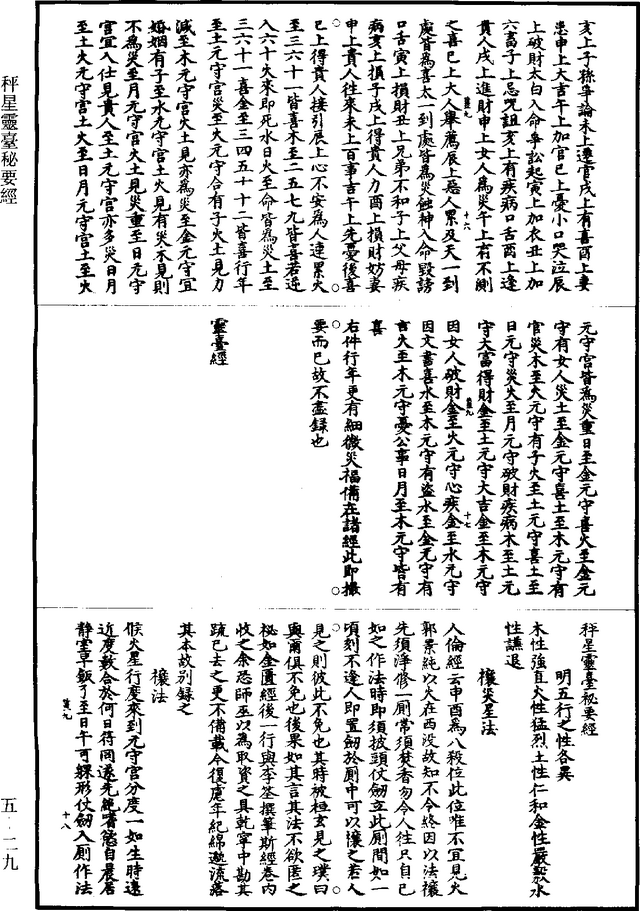 秤星靈臺秘要經
亥上子孫爭論未上遷官戌上有喜酉上妻
患申上大吉午上加官巳上憂小口哭泣辰
上破財太白入命爭訟起寅上加衣丑上加
六畜子上忌咒詛亥上有疾病口舌酉上逢
貴人戌上進財申上女人為災午上有不測
之喜巳上大人舉薦辰上惡人累及天一到
處皆為喜太一到處皆為災蝕神入命毀謗
口舌寅上損財丑上兄弟不和子上父母疾
病亥上損子戌上得貴人力酉上損財妨妻
申上貴人往來未上百事吉午上先憂後喜
巳上得貴人接引辰上心不安為人連累火
至三六十一皆喜木至二五七九皆喜若近
入六十失來即死水日火至命皆為災土至
三六十一喜金至三四五十十二皆喜行年
至土元守宮災至火元守合有子火土見力
減至木元守宮火土見亦為災至金元守宜
婚姻有子至水元守宮土火見有災木見則
不為災至月元守宮火土見災重至日元守
宮宜入仕見貴人至土元守宮亦多災日月
至土火元守宮土火至日月元守宮土至火
元守宮皆為災重日至金元守喜火至金元
守有女人災土至金元守喜土至木元守有
官災木至火元守有子火至土元守喜土至
日元守災火至月元守破財疾病木至土元
守大富得財金至土元守大吉金至木元守
因女人破財金至火元守心疾金至水元守
因文書喜水至木元守有盜水至金元守有
言火至木元守憂公事日月至木元守皆有
喜
右件行年更有細微災福備在諸經此即撮
要而已故不盡錄也
靈臺經
秤星靈臺秘要經
明五行之性各異
木性強直火性猛烈土性仁和金性嚴毅水
性謙退
禳災星法
人倫經云申酉為八殺位此位唯不宜見火
郭景純以火在酉没故知不令終因以法禳
先須淨修一廁常須焚香勿令人往只自己
如之作法時即須披頭仗劒立此廁間如一
頃刻不逢人即置劒於廁中可以禳之若人
見之則彼此不免也其時被桓玄見之璞曰
與爾俱不免也後果如其言其法不欲匿之
秘如金匱經後一行與李筌撰筆斯經卷內
收之余恐師巫以為取資之具乾寧中勘其
䟽已去之更不備載今復慮年紀綿邈流落
其本故別錄之
禳法
候火星行度來到元守宮分度一如生時遠
近度數合於何日得同還先絕嗜慾自晨居
靜室早飯了至日午可躶形仗劒入廁作法
五-二九